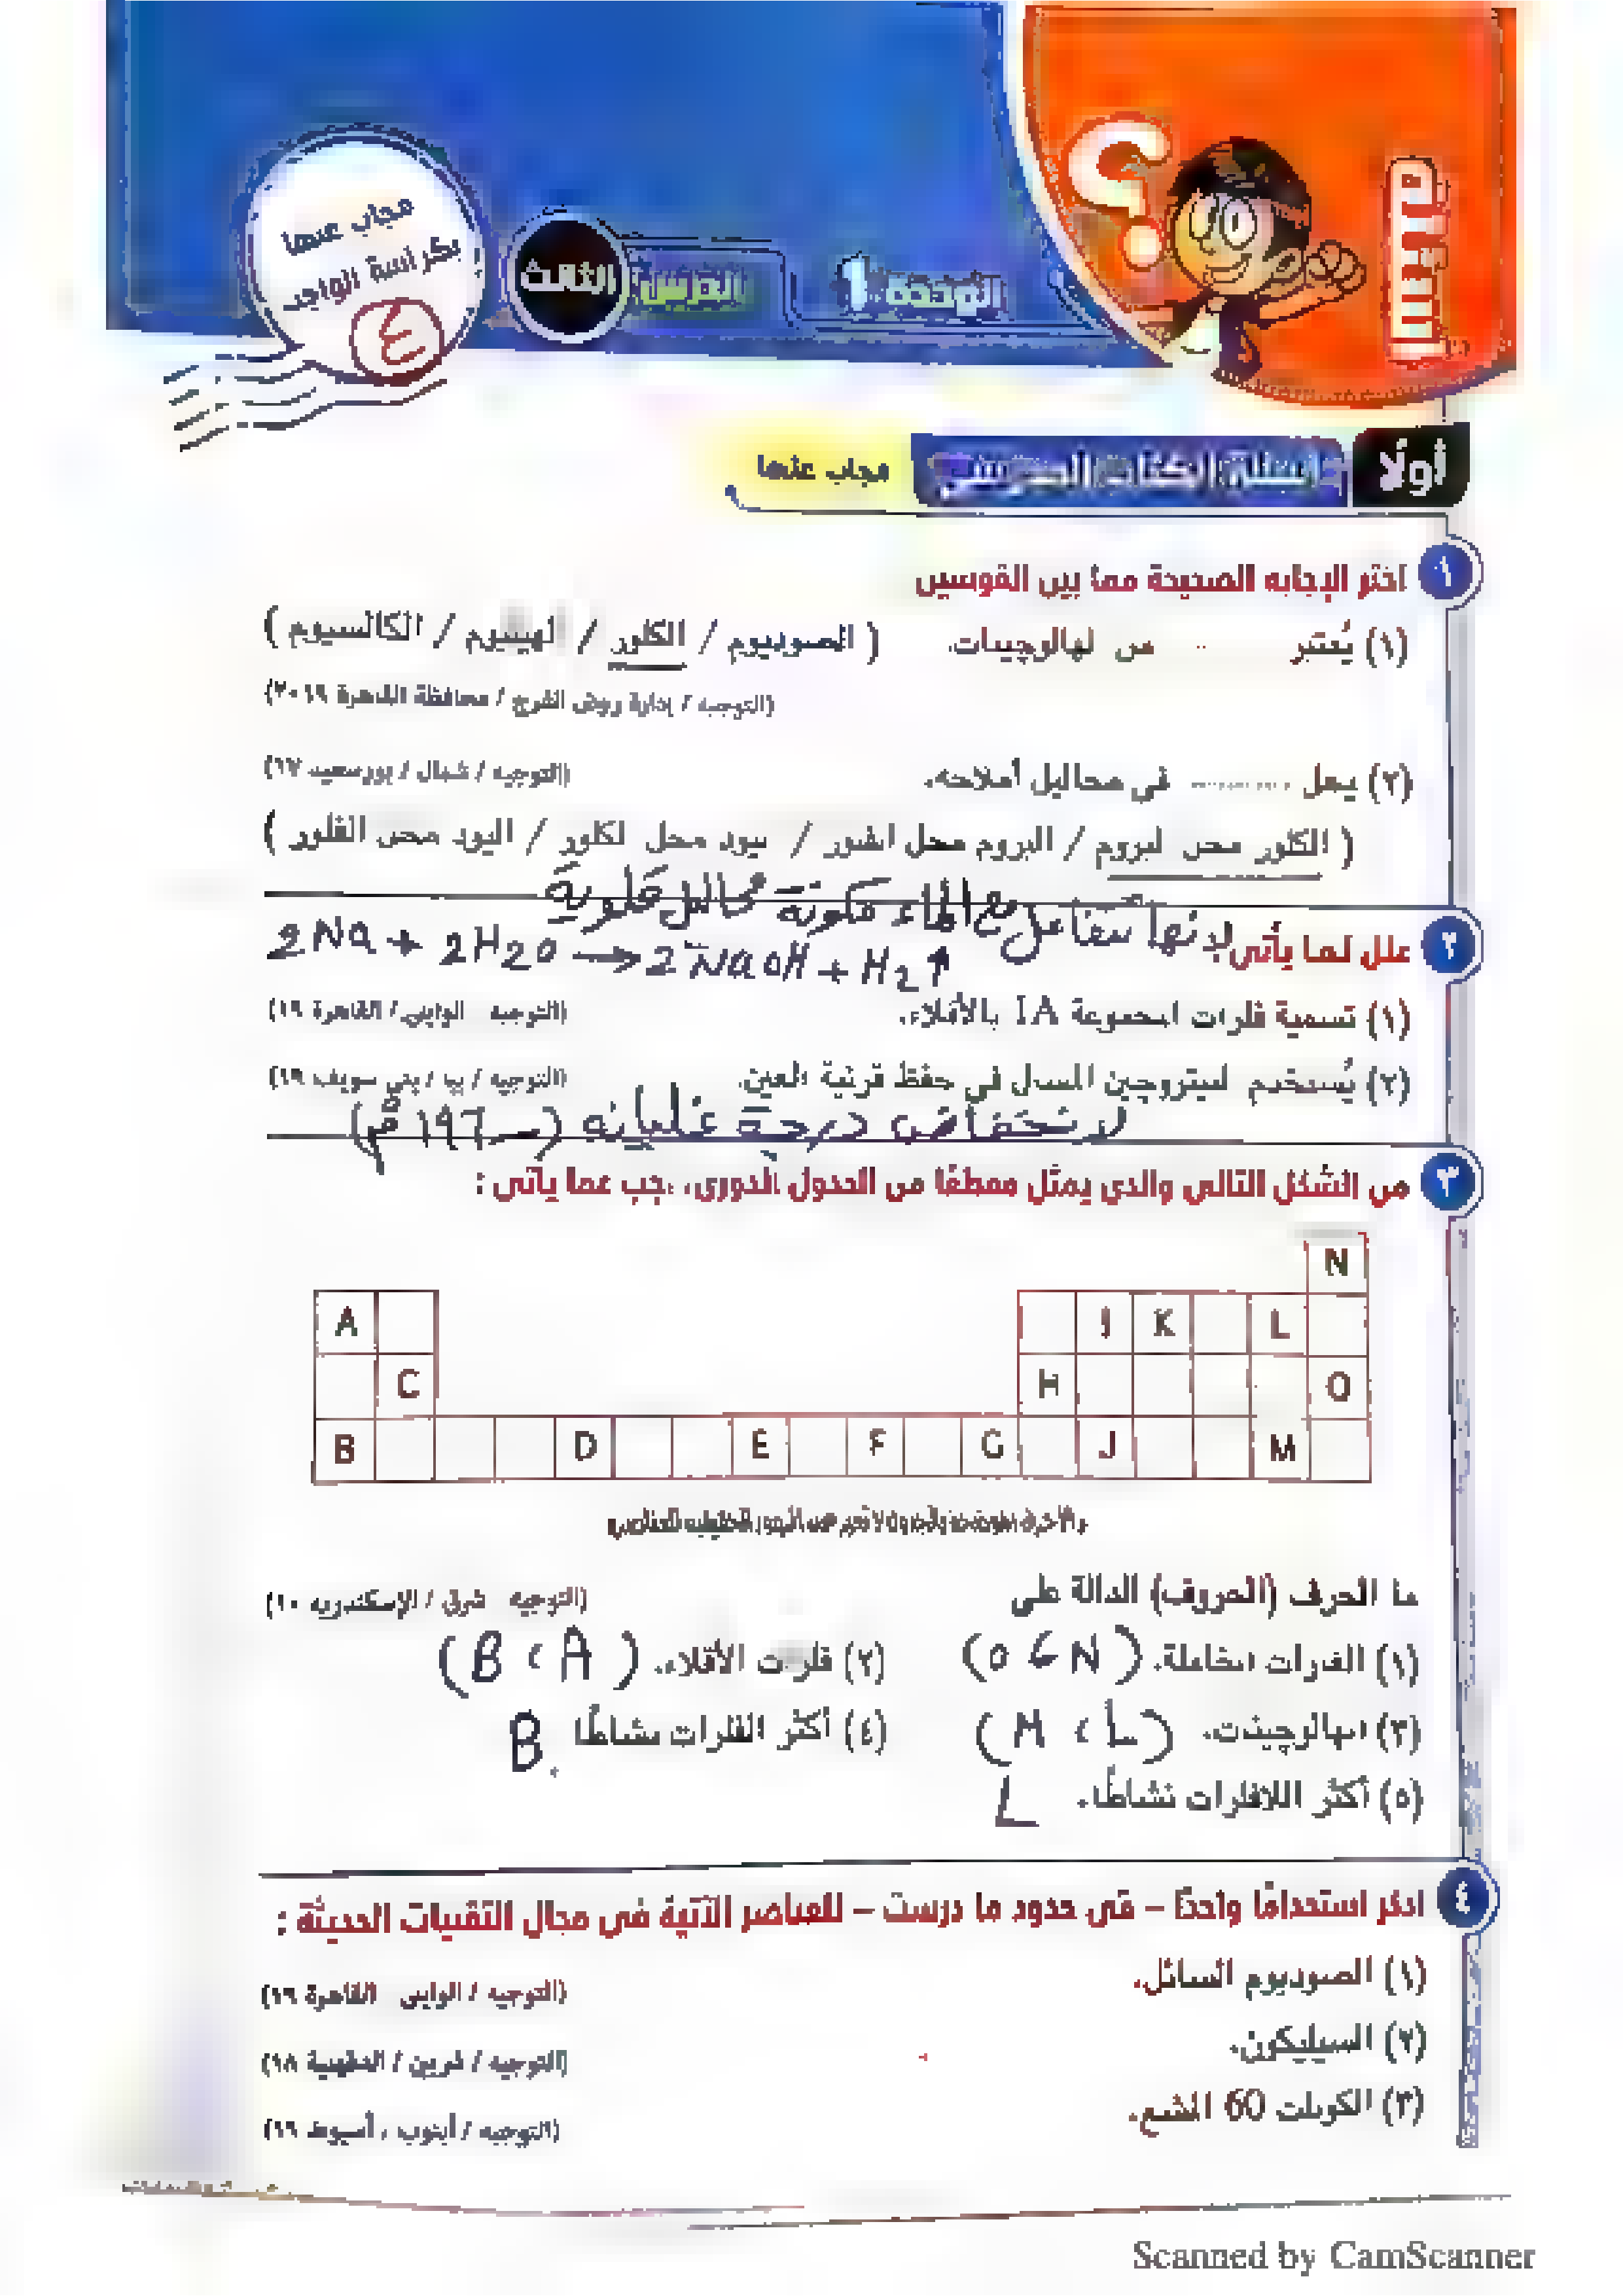 أسئلة
الوحدة 1
الدرس الثالث
مجاب عنها
بكراسة الواجب
٤
أولًا
أسئلة الكتاب المدرسى
مجاب عنها
١ اختر الإجابة الصحيحة مما بين القوسين
(١) يُعتبر من الهالوجينات. ( الصوديوم / الكلور / الهيليوم / الكالسيوم )
(التوجيه / إدارة روض الفرج / محافظة القاهرة ٢٠١٩)
(٢) يحل ........ فى محاليل أملاحه. (التوجيه / شمال / بورسعيد ١٧)
( الكلور محل البروم / البروم محل الفلور / اليود محل الكلور / اليود محل الفلور )
لأنها تتفاعل مع الماء مكونة محاليل قلوية
٢ علل لما يأتى
2Na + 2H2O → 2NaOH + H2↑
(١) تسمية فلزات المجموعة 1A بالأقلاء. (التوجيه الوايلى / القاهرة ١٩)
(٢) يُستخدم النيتروجين المسال فى حفظ قرنية العين. (التوجيه / ببا / بنى سويف ١٩)
لانخفاض درجة غليانه (-١٩٦°م)
٣ من الشكل التالى والذى يمثل مقطعًا من الجدول الدورى، أجب عما يأتى :
N
A I K L
C H O
B D E F G J M
ما الحرف (الحروف) الدالة على (التوجيه شرق / الإسكندرية ١٠)
(١) الفلزات الخاملة. (N ، O)
(٢) فلزات الأقلاء. (A ، B)
(٣) الهالوجينات. (L ، M)
(٤) أكثر الفلزات نشاطًا B.
(٥) أكثر اللافلزات نشاطًا. L
٤ اذكر استخدامًا واحدًا – فى حدود ما درست – للعناصر الآتية فى مجال التقنيات الحديثة :
(١) الصوديوم السائل. (التوجيه / الوايلى القاهرة ١٩)
(٢) السيليكون. (التوجيه / شربين / الدقهلية ١٨)
(٣) الكوبلت 60 المشع. (التوجيه / أبنوب ، أسيوط ١٦)
Scanned by CamScanner